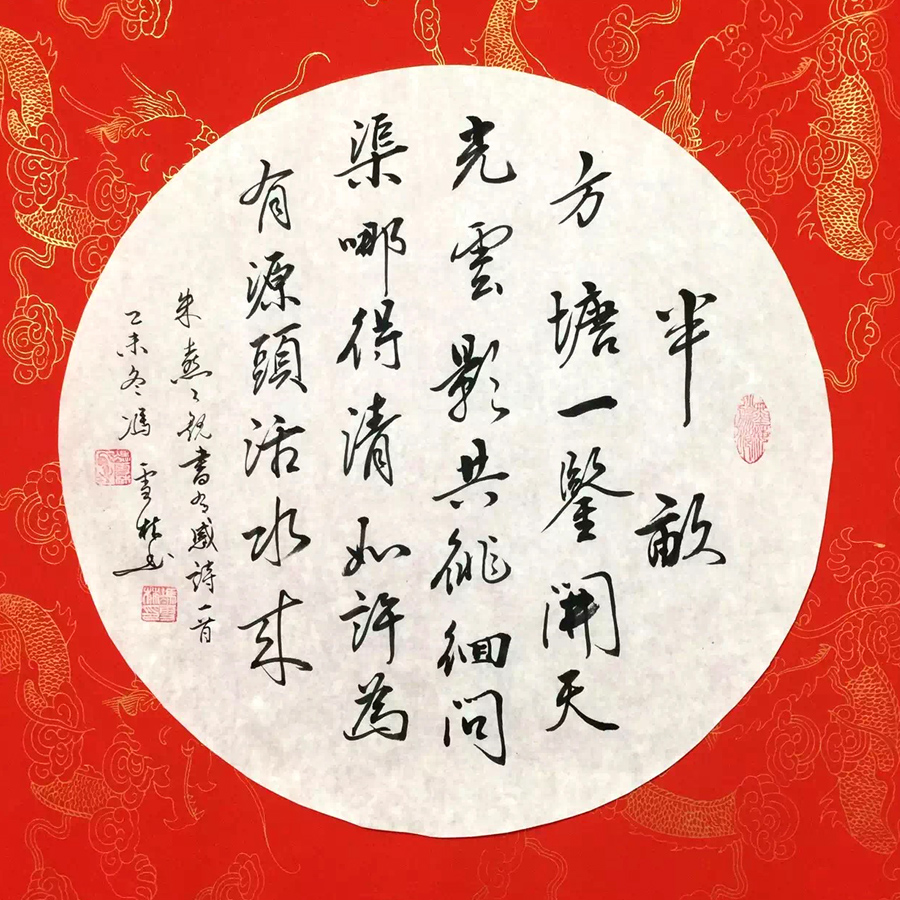 半畝
方塘一鑒開天
光雲影共徘徊問
渠哪得清如許為
有源頭活水來
朱熹觀書有感詩一首
乙未冬馮雪林書